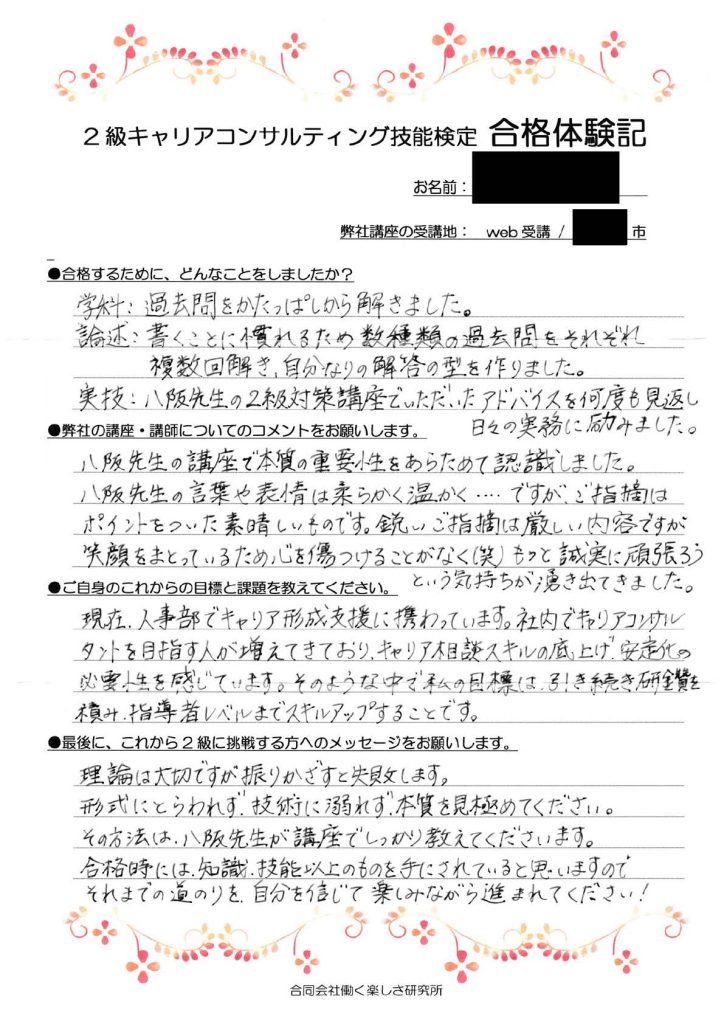 2級キャリアコンサルティング技能検定 合格体験記
お名前：
弊社講座の受講地： web受講 / 市
●合格するために、どんなことをしましたか？
学科：過去問をかたっぱしから解きました。
論述：書くことに慣れるため数種類の過去問をそれぞれ
複数回解き、自分なりの解答の型を作りました。
実技：八阪先生の2級対策講座でいただいたアドバイスを何度も見返し
日々の実務に励みました。
●弊社の講座・講師についてのコメントをお願いします。
八阪先生の講座で本質の重要性をあらためて認識しました。
八阪先生の言葉や表情は柔らかく温かく‥‥ですが、ご指摘は
ポイントをついた素晴しいものです。鋭いご指摘は厳しい内容ですが
笑顔をまとっているため心を傷つけることがなく(笑)もっと誠実に頑張ろう
という気持ちが湧き出てきました。
●ご自身のこれからの目標と課題を教えてください。
現在、人事部でキャリア形成支援に携わっています。社内でキャリアコンサル
タントを目指す人が増えてきており、キャリア相談スキルの底上げ、安定化の
必要性を感じています。そのような中で私の目標は、引き続き研鑽を
積み、指導者レベルまでスキルアップすることです。
●最後に、これから2級に挑戦する方へのメッセージをお願いします。
理論は大切ですが振りかざすと失敗します。
形式にとらわれず、技術に溺れず、本質を見極めてください。
その方法は、八阪先生が講座でしっかり教えてくださいます。
合格時には、知識、技能以上のものを手にされていると思いますので
それまでの道のりを、自分を信じて楽しみながら進まれてください！
合同会社働く楽しさ研究所